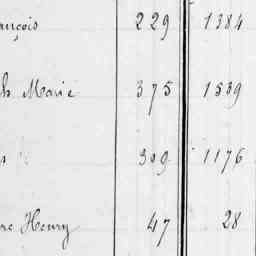 ançois 229 1384
Marie 375 1539
309 1176
Henry 47 28